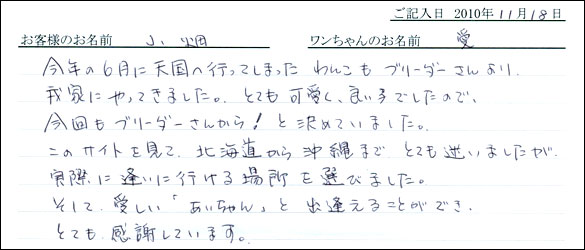 ご記入日 2010年 11月 18日
お客様のお名前 小畑 ワンちゃんのお名前 愛
今年の6月に天国へ行ってしまった わんこも ブリーダーさんより、
我家にやってきました。とても可愛く、良い子でしたので、
今回もブリーダーさんから！と決めていました。
このサイトを見て、北海道から沖縄まで とても迷いましたが、
実際に逢いに行ける場所を選びました。
そして、愛しい「あいちゃん」と出逢えることができ、
とても感謝しています。